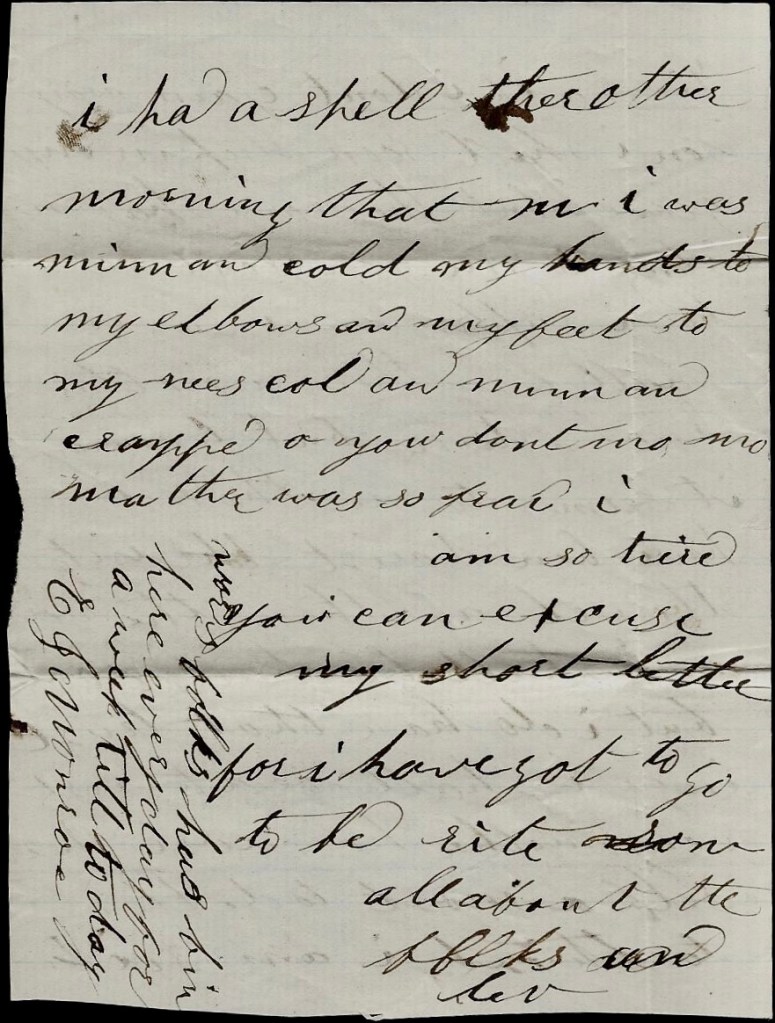 i had a spell the other
morning that i was
numm and cold my hands to
my elbows and my feet to
my nees col and numm and
crappe o you dont no no
mather was so frad i
am so tired
you can excuse
my short letter
for i have got to go
to be rite
all about the
folks and
lev
folks has bin
here every day for
a week till to day
E J Monroe